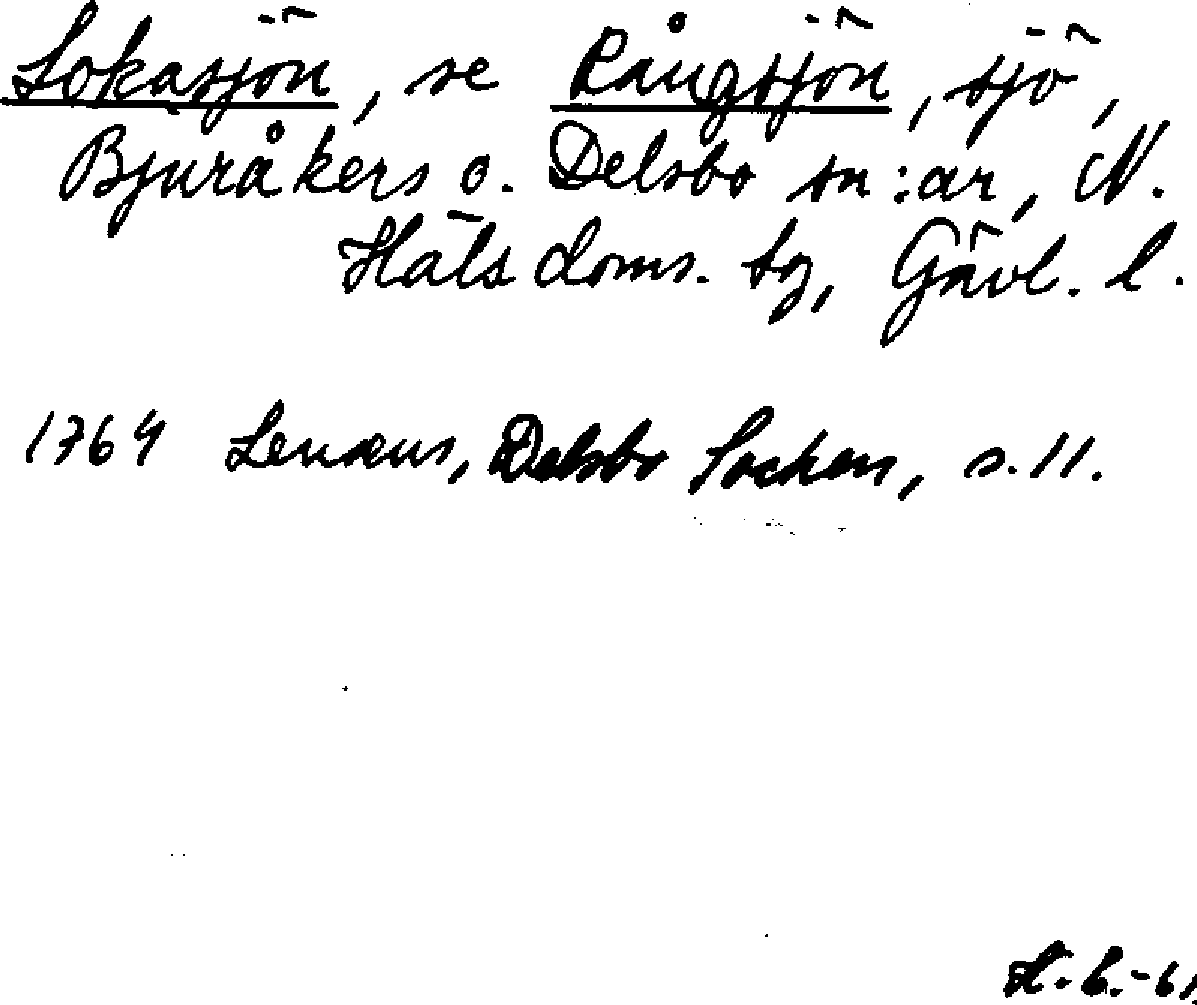 Lokasjön, se Rångsjön, sjö,
Bjuråkers o. Delsbo sn:ar, N.
Häls. doms. tg, Gävl. l.
1764 Lenæus, Delsbo Socken, s. 11.